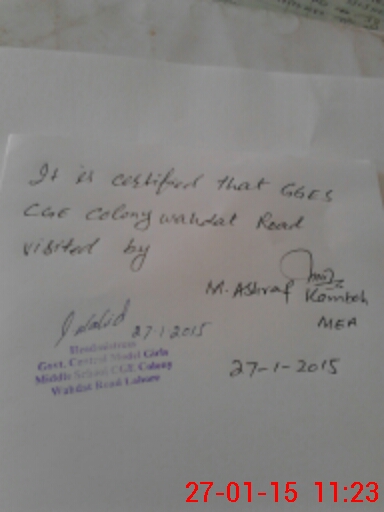 It is certified that GGES
CGE colony wahdat Road
visited by
M. Ashraf Kamboh
MEA
27-1-2015
27-1-2015
Headmistress
Govt. Central Model Girls
Middle School CGE Colony
Wahdat Road Lahore
27-01-15 11:23